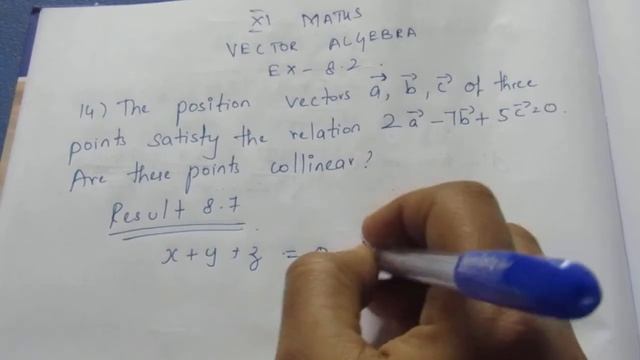 XI MATHS
VECTOR ALGEBRA
EX - 8.2.
14) The position vectors a⃗, b⃗, c⃗ of three
points satisfy the relation 2a⃗ - 7b⃗ + 5c⃗ = 0.
Are these points collinear?
Result 8.7
x + y + z =